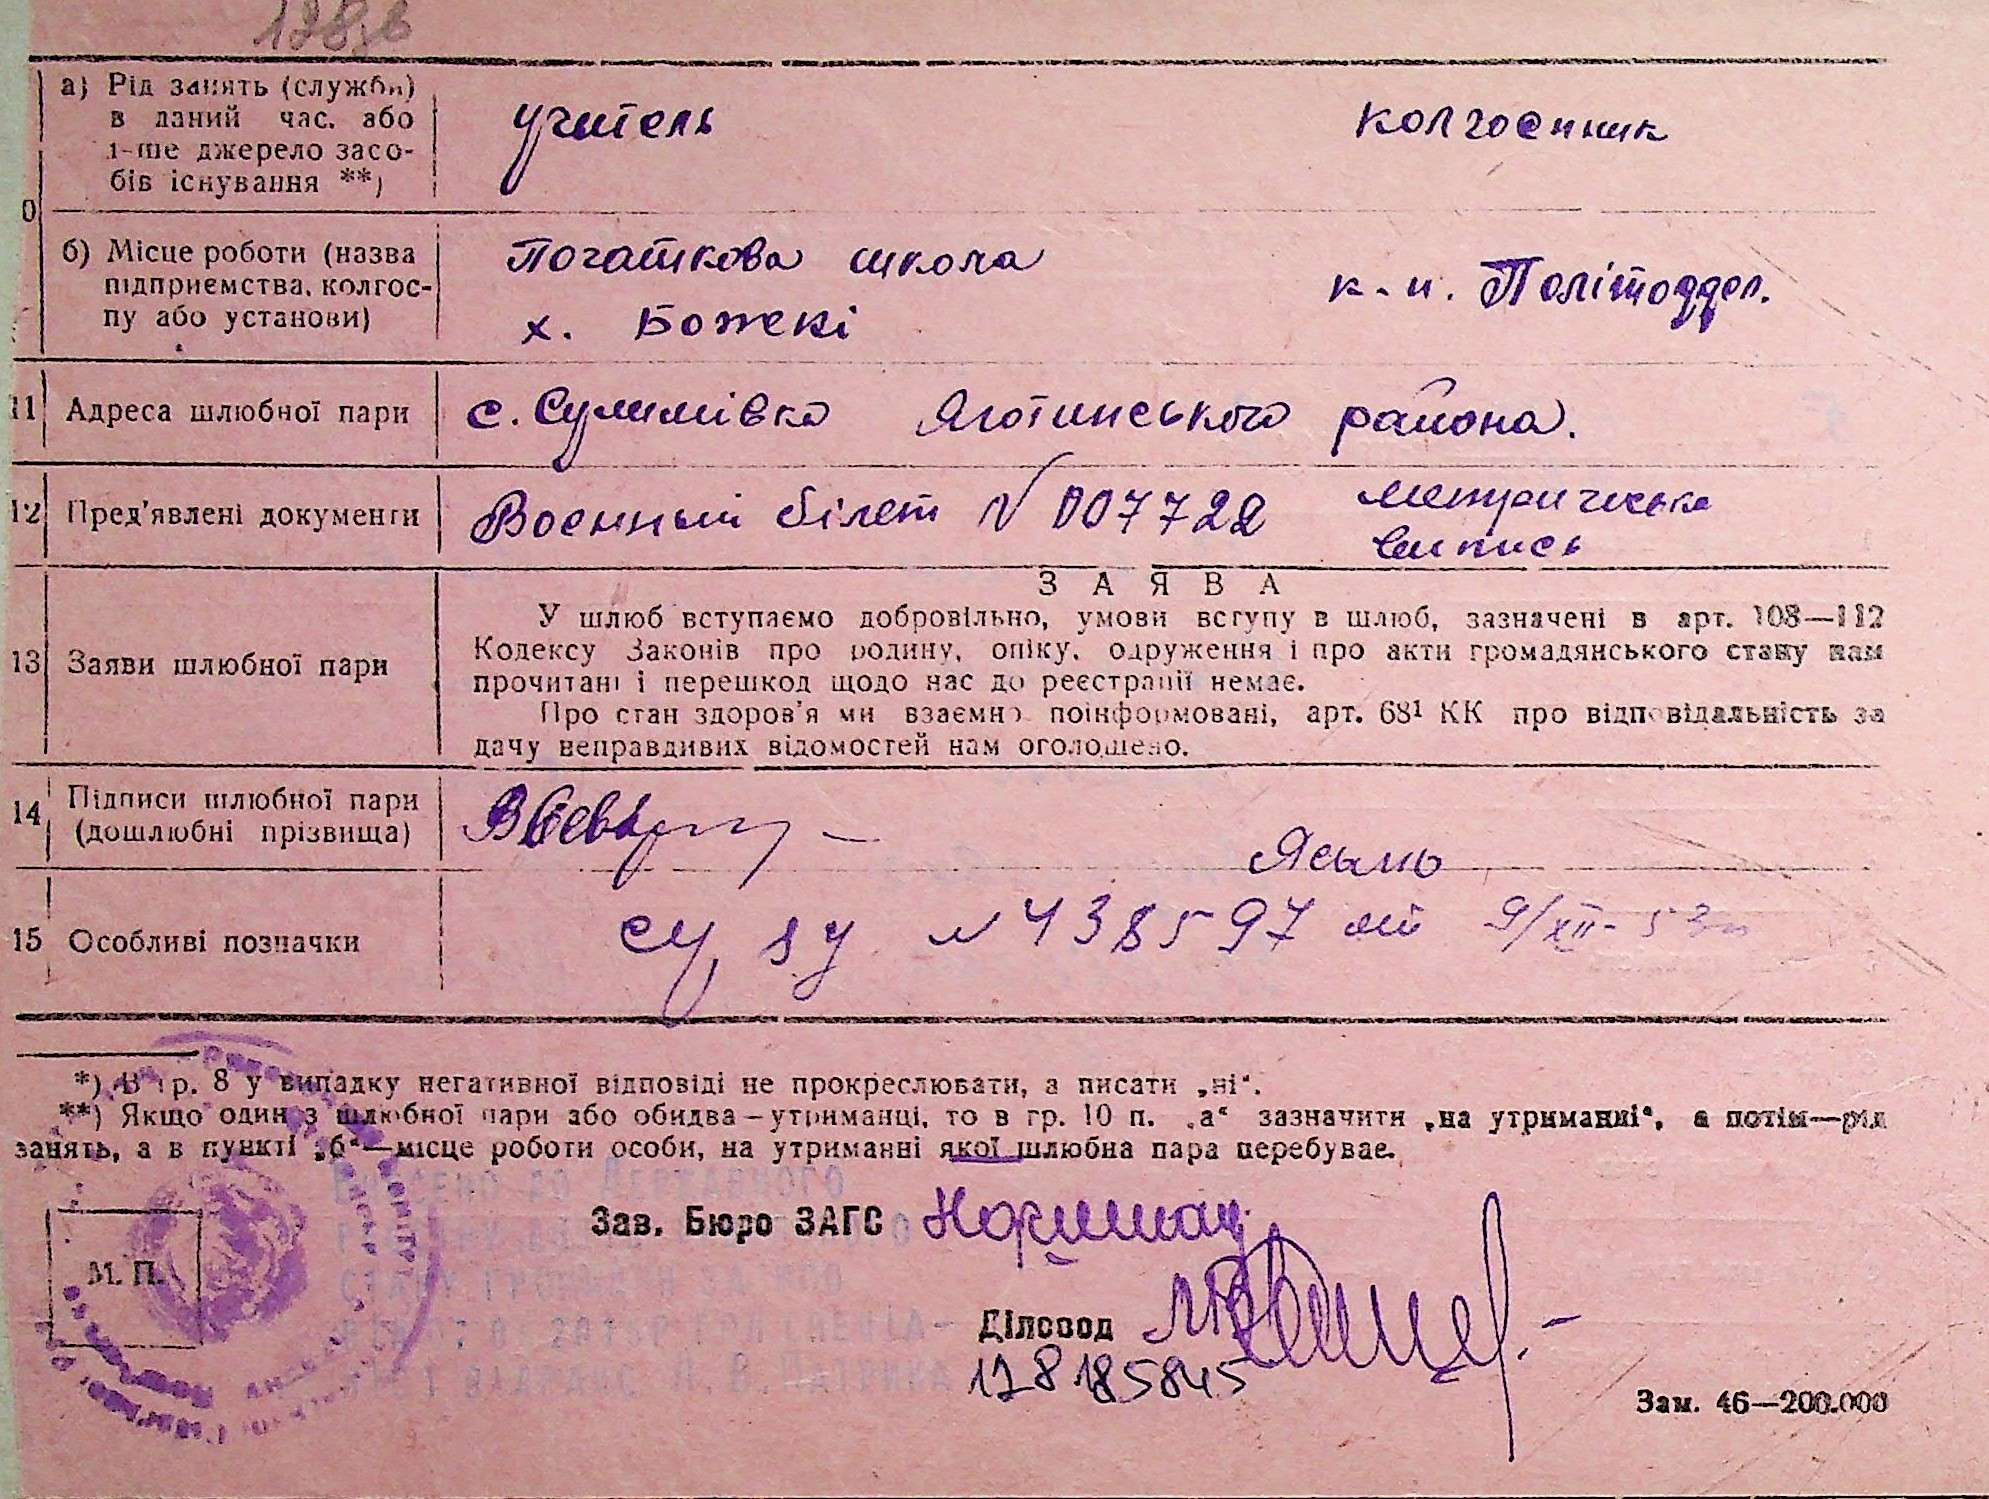 а) Рід занять (служби)
в даний час, або
1-ше джерело засо-
бів існування **)
учитель
колгоспник
б) Місце роботи (назва
підприємства, колгос-
пу або установи)
Початкова школа
х. Божкі
к-п. Політоддел.
11 Адреса шлюбної пари
с. Сулимівка Яготинського района.
12 Пред'явлені документи
Военный білет N 007722
метрическа
випись
13 Заяви шлюбної пари
ЗАЯВА
У шлюб вступаємо добровільно, умови вступу в шлюб, зазначені в арт. 108—112
Кодексу Законів про родину, опіку, одруження і про акти громадянського стану нам
прочитані і перешкод щодо нас до реєстрації немає.
Про стан здоров'я ми взаємно поінформовані, арт. 68¹ КК про відповідальність за
дачу неправдивих відомостей нам оголошено.
14 Підписи шлюбної пари
(дошлюбні прізвища)
15 Особливі позначки
N 438597 от 9/XII-53
*) В гр. 8 у випадку негативної відповіді не прокреслювати, а писати „ні“.
**) Якщо один з шлюбної пари або обидва—утриманці, то в гр. 10 п. „а“ зазначити „на утриманні“, а потім—рід
занять, а в пункті „б“—місце роботи особи, на утриманні якої шлюбна пара перебуває.
Зав. Бюро ЗАГС
М. П.
Діловод
Зам. 46—200.000